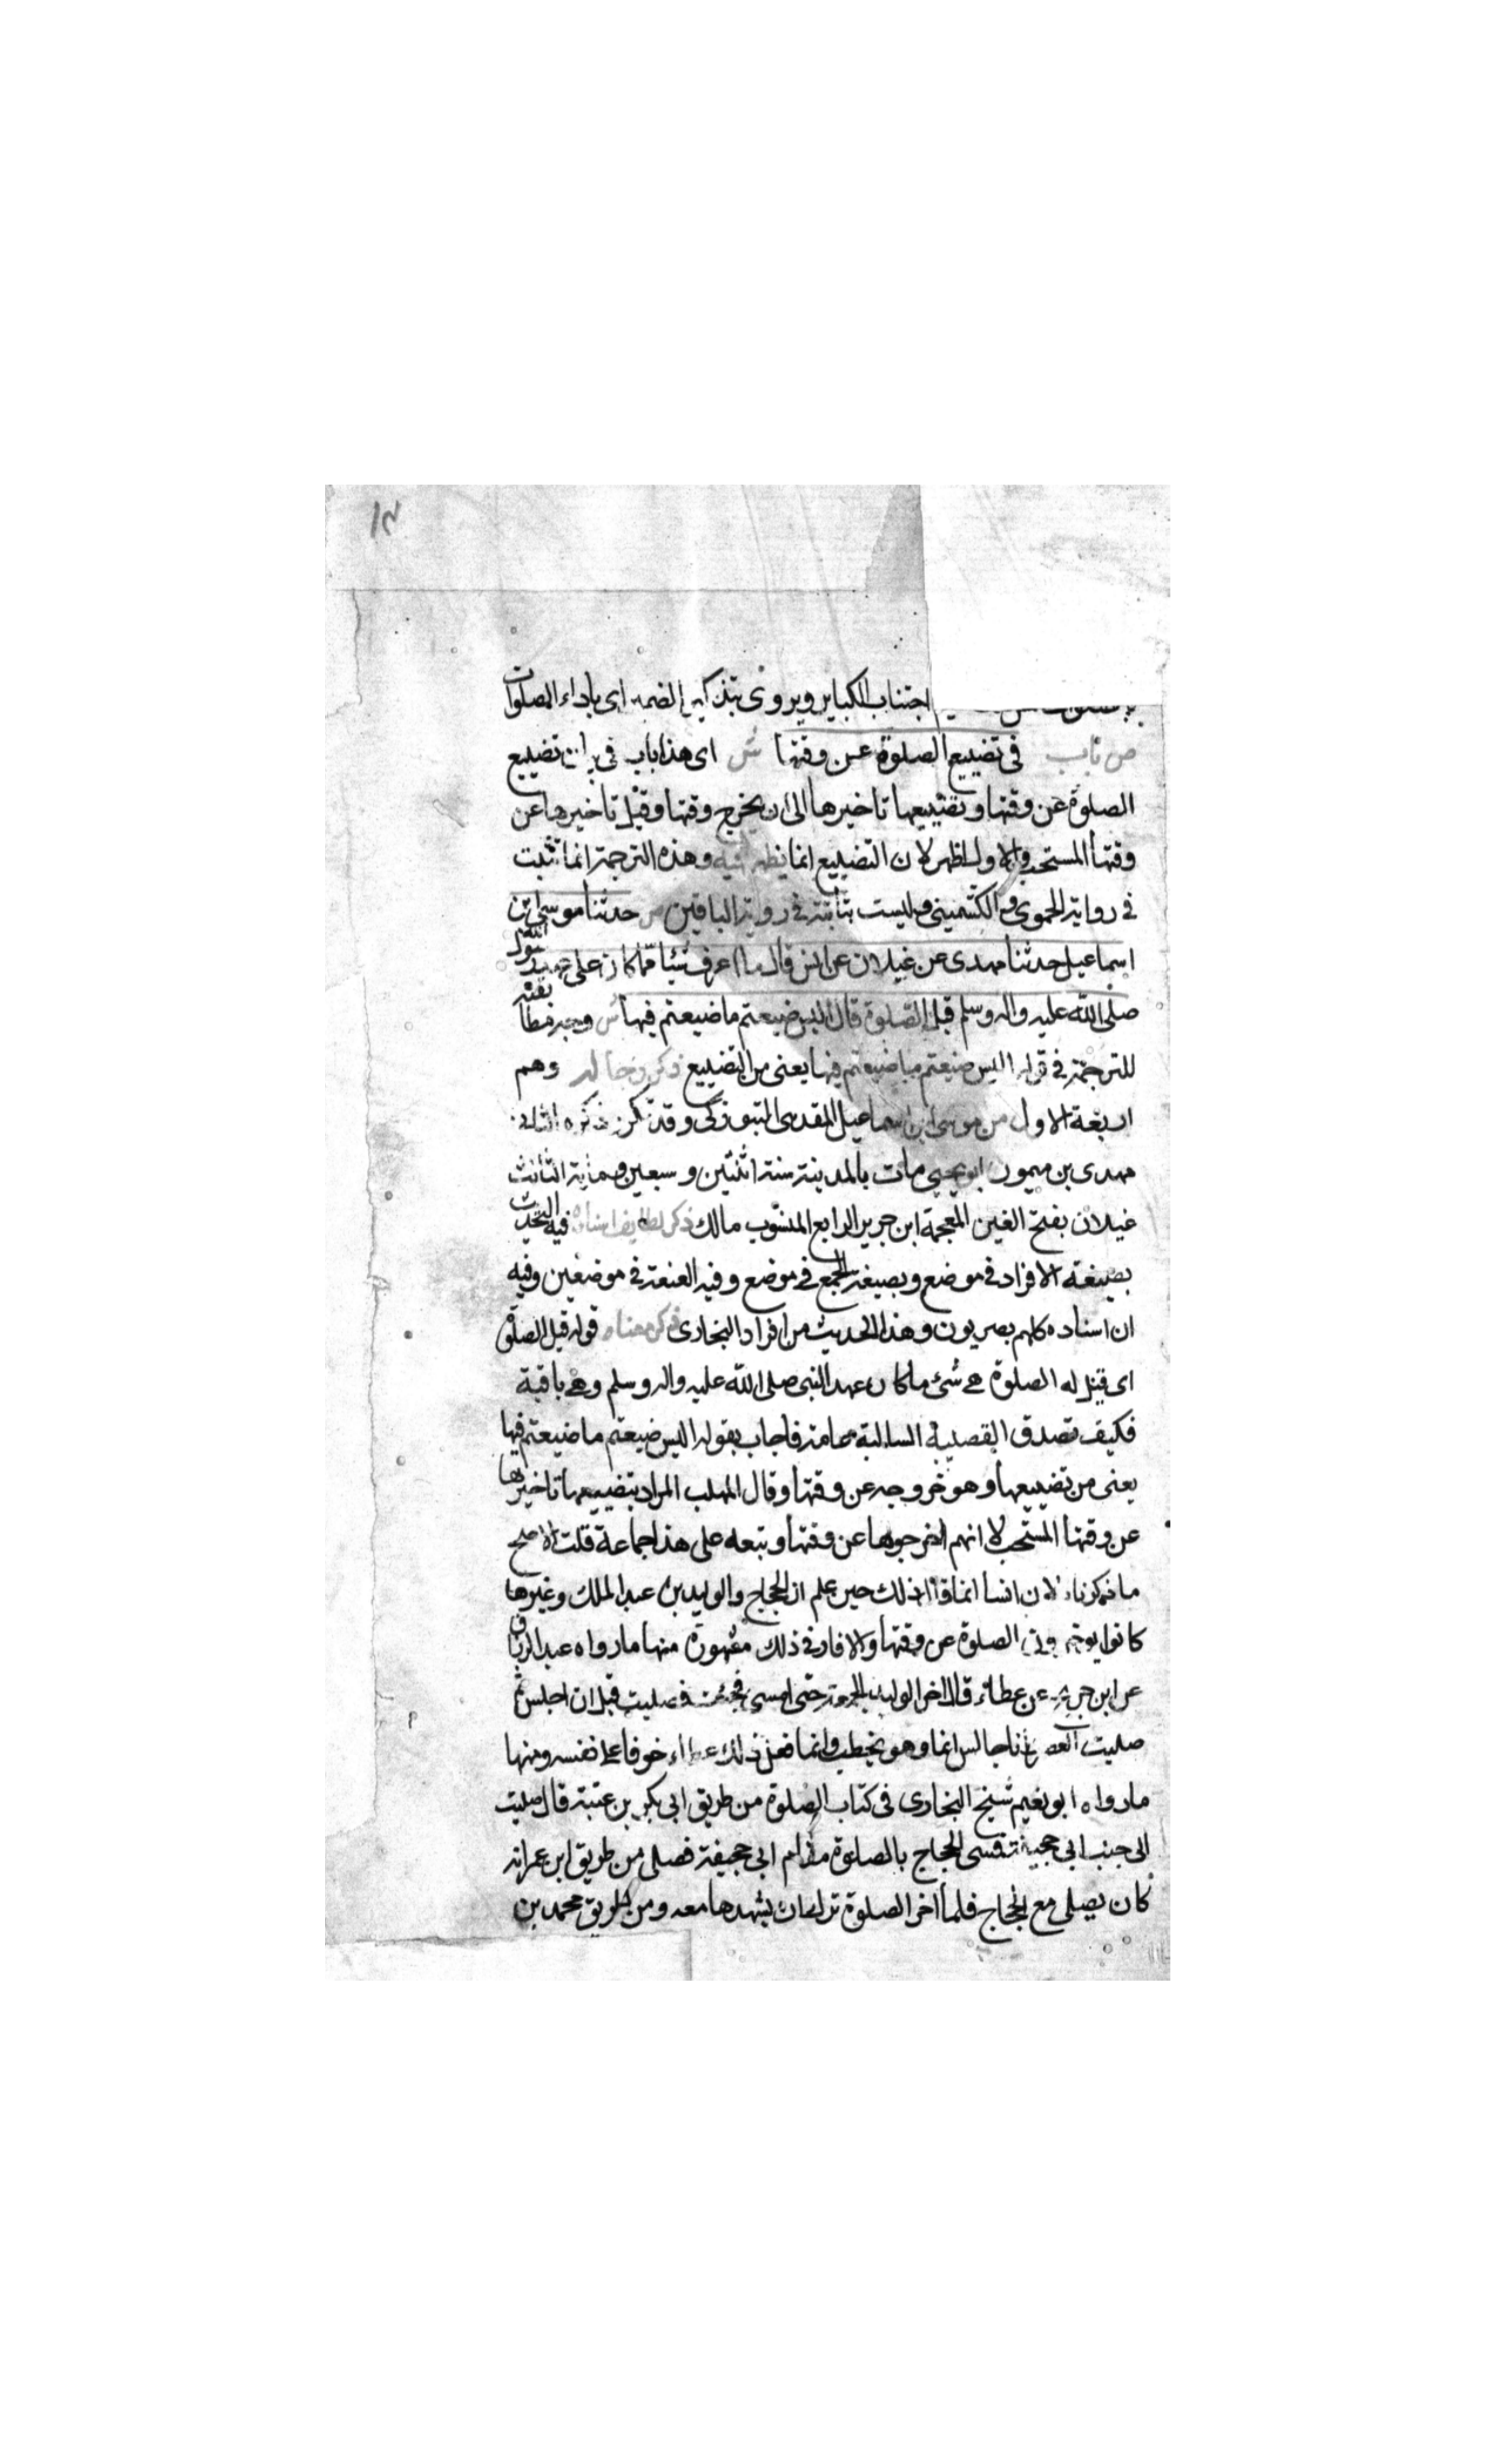 اجتناب الكبائر ويروى بتذكير الضمير اى باداء الصلوات
ص باب فى تضييع الصلوة عن وقتها ش اى هذا باب فى بيان تضييع
الصلوة عن وقتها وتضييعها تاخيرها الى ان يخرج وقتها وقيل تاخيرها عن
وقتها المستحب والاول اظهر لان التضييع انما يظهر فيه وهذه الترجمة انما تثبت
فى رواية الحموى والكشميهنى وليست بثابتة فى رواية الباقين ص حدثنا موسى ابن
اسماعيل حدثنا مهدى عن غيلان عن انس قال ما اعرف شيئا مما كان على عهد رسول الله
صلى الله عليه واله وسلم قيل الصلوة قال اليس ضيعتم ما ضيعتم فيها ش وجه مطابقته
للترجمة فى قوله اليس ضيعتم ما ضيعتم فيها يعنى من التضييع ذكر رجاله وهم
اربعة الاول من موسى ابن اسماعيل المقدى التبوذكى وقد تكرر ذكره الثانى
مهدى بن ميمون ابو يحيى مات بالمدينة سنة اثنتين وسبعين ومائة الثالث
غيلان بفتح الغين المعجمة ابن جرير الرابع المنسوب مالك ذكر لطايف اسناده فيه التحديث
بصيغة الافراد فى موضع وبصيغة الجمع فى موضع وفيه العنعنة فى موضعين وفيه
ان اسناده كلهم بصريون وهذا الحديث من افراد البخارى ذكر معناه قوله قيل الصلوة
اى قيل له الصلوة هى شئ ما كان عهد النبى صلى الله عليه واله وسلم وهى باقية
فكيف تصدق القضية السالبة عامة فاجاب بقوله اليس ضيعتم ما ضيعتم فيها
يعنى من تضييعها وهو خروجه عن وقتها وقال المهلب المراد بتضييعها تاخيرها
عن وقتها المستحب لا انهم اخرجوها عن وقتها وتبعه على هذا جماعة قلت الاصح
ما ذكرناه لان انسا انما قال ذلك حين علم ان الحجاج والوليد بن عبد الملك وغيرها
كانوا يوخرون الصلوة عن وقتها والاثار فى ذلك مشهورة منها ما رواه عبد الرزاق
عن ابن جريج عن عطاء قال اخر الوليد الجمعة حتى امسى فجئت فصليت قبل ان اجلس ثم
صليت العصر وانا جالس ايما وهو يخطب وانما فعل ذلك عطاء خوفا على نفسه ومنها
ما رواه ابو نعيم شيخ البخارى فى كتاب الصلوة من طريق ابى بكر بن عتبة قال صليت
الى جنب ابى جحيفة فمسى الحجاج بالصلوة فقام ابى جحيفة فصلى من طريق ابن عمر انه
كان يصلى مع الحجاج فلما اخر الصلوة ترك ان يشهدها معه ومن طريق محمد بن